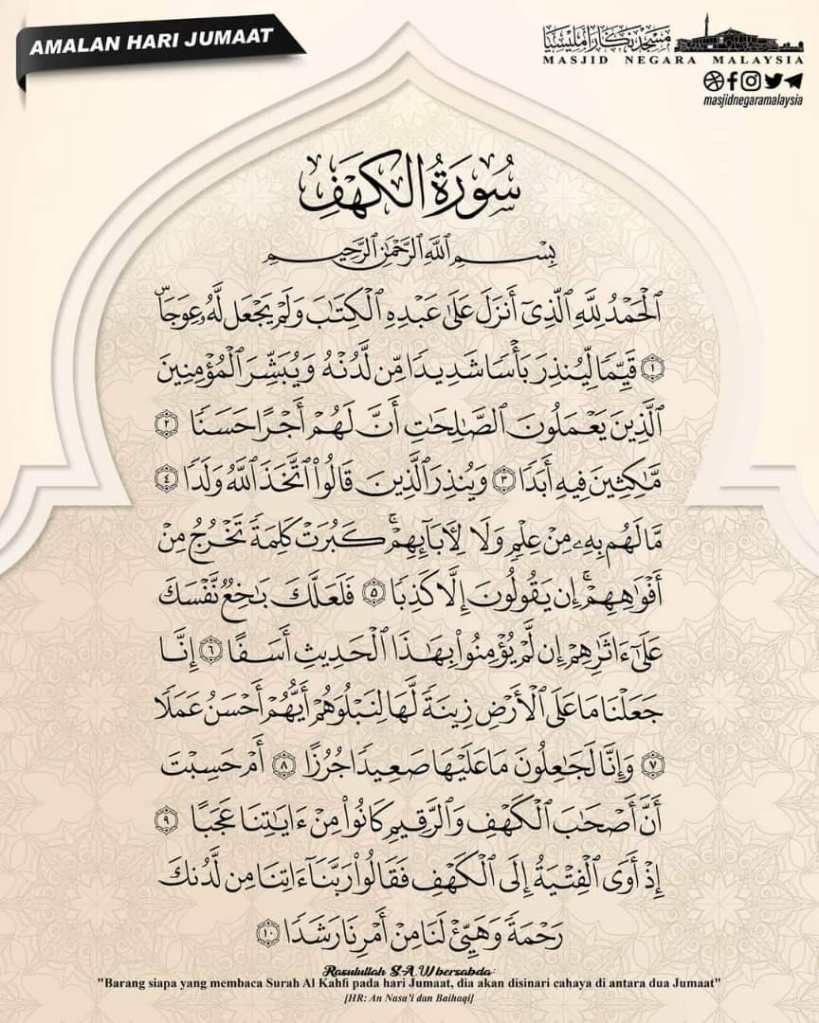 AMALAN HARI JUMAAT
مسجد نݢارا مليسيا
MASJID NEGARA MALAYSIA
masjidnegaramalaysia
سُورَةُ الكَهْفِ
بِسْمِ ٱللَّهِ ٱلرَّحْمَٰنِ ٱلرَّحِيمِ
ٱلْحَمْدُ لِلَّهِ ٱلَّذِىٓ أَنزَلَ عَلَىٰ عَبْدِهِ ٱلْكِتَٰبَ وَلَمْ يَجْعَل لَّهُۥ عِوَجَاۜ
﴿١﴾ قَيِّمًا لِّيُنذِرَ بَأْسًا شَدِيدًا مِّن لَّدُنْهُ وَيُبَشِّرَ ٱلْمُؤْمِنِينَ
ٱلَّذِينَ يَعْمَلُونَ ٱلصَّٰلِحَٰتِ أَنَّ لَهُمْ أَجْرًا حَسَنًا ﴿٢﴾
مَّٰكِثِينَ فِيهِ أَبَدًا ﴿٣﴾ وَيُنذِرَ ٱلَّذِينَ قَالُوا۟ ٱتَّخَذَ ٱللَّهُ وَلَدًا ﴿٤﴾
مَّا لَهُم بِهِۦ مِنْ عِلْمٍ وَلَا لِأٓبَآئِهِمْ ۚ كَبُرَتْ كَلِمَةً تَخْرُجُ مِنْ
أَفْوَٰهِهِمْ ۚ إِن يَقُولُونَ إِلَّا كَذِبًا ﴿٥﴾ فَلَعَلَّكَ بَٰخِعٌ نَّفْسَكَ
عَلَىٰٓ ءَاثَٰرِهِمْ إِن لَّمْ يُؤْمِنُوا۟ بِهَٰذَا ٱلْحَدِيثِ أَسَفًا ﴿٦﴾ إِنَّا
جَعَلْنَا مَا عَلَى ٱلْأَرْضِ زِينَةً لَّهَا لِنَبْلُوَهُمْ أَيُّهُمْ أَحْسَنُ عَمَلًا
﴿٧﴾ وَإِنَّا لَجَٰعِلُونَ مَا عَلَيْهَا صَعِيدًا جُرُزًا ﴿٨﴾ أَمْ حَسِبْتَ
أَنَّ أَصْحَٰبَ ٱلْكَهْفِ وَٱلرَّقِيمِ كَانُوا۟ مِنْ ءَايَٰتِنَا عَجَبًا ﴿٩﴾
إِذْ أَوَى ٱلْفِتْيَةُ إِلَى ٱلْكَهْفِ فَقَالُوا۟ رَبَّنَآ ءَاتِنَا مِن لَّدُنكَ
رَحْمَةً وَهَيِّئْ لَنَا مِنْ أَمْرِنَا رَشَدًا ﴿١٠﴾
Rasulullah S.A.W bersabda:
"Barang siapa yang membaca Surah Al Kahfi pada hari Jumaat, dia akan disinari cahaya di antara dua Jumaat"
[HR: An Nasa'i dan Baihaqi]